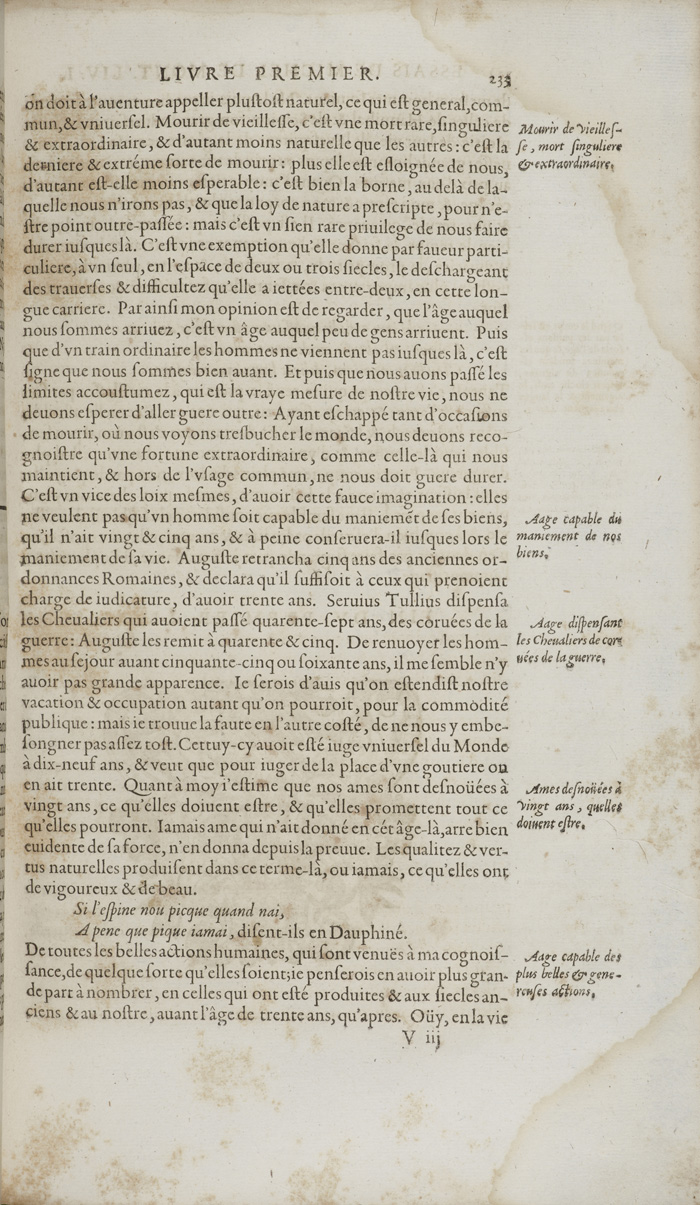 LIVRE PREMIER. 233
on doit à l'auenture appeller pluſtoſt naturel, ce qui eſt general, com-
mun, & vniuerſel. Mourir de vieilleſſe, c'eſt vne mort rare, ſinguliere
& extraordinaire, & d'autant moins naturelle que les autres : c'eſt la
derniere & extréme ſorte de mourir : plus elle eſt eſloignée de nous,
d'autant eſt-elle moins eſperable : c'eſt bien la borne, au delà de la-
quelle nous n'irons pas, & que la loy de nature a preſcripte, pour n'e-
ſtre point outre-paſſée : mais c'eſt vn ſien rare priuilege de nous faire
durer iuſques là. C'eſt vne exemption qu'elle donne par faueur parti-
culiere, à vn ſeul, en l'eſpace de deux ou trois ſiecles, le deſchargeant
des trauerſes & difficultez qu'elle a iettées entre-deux, en cette lon-
gue carriere. Par ainſi mon opinion eſt de regarder, que l'âge auquel
nous ſommes arriuez, c'eſt vn âge auquel peu de gens arriuent. Puis
que d'vn train ordinaire les hommes ne viennent pas iuſques là, c'eſt
ſigne que nous ſommes bien auant. Et puis que nous auons paſſé les
limites accouſtumez, qui eſt la vraye meſure de noſtre vie, nous ne
deuons eſperer d'aller guere outre : Ayant eſchappé tant d'occaſions
de mourir, où nous voyons treſbucher le monde, nous deuons reco-
gnoiſtre qu'vne fortune extraordinaire, comme celle-là qui nous
maintient, & hors de l'vſage commun, ne nous doit guere durer.
C'eſt vn vice des loix meſmes, d'auoir cette fauce imagination : elles
ne veulent pas qu'vn homme ſoit capable du maniemēt de ſes biens,
qu'il n'ait vingt & cinq ans, & à peine conſeruera-il iuſques lors le
maniement de ſa vie. Auguſte retrancha cinq ans des anciennes or-
donnances Romaines, & declara qu'il ſuffiſoit à ceux qui prenoient
charge de iudicature, d'auoir trente ans. Seruius Tullius diſpenſa
les Cheualiers qui auoient paſſé quarente-ſept ans, des coruées de la
guerre : Auguſte les remit à quarente & cinq. De renuoyer les hom-
mes au ſejour auant cinquante-cinq ou ſoixante ans, il me ſemble n'y
auoir pas grande apparence. Ie ſerois d'auis qu'on eſtendiſt noſtre
vacation & occupation autant qu'on pourroit, pour la commodité
publique : mais ie trouue la faute en l'autre coſté, de ne nous y embe-
ſongner pas aſſez toſt. Cettuy-cy auoit eſté iuge vniuerſel du Monde
à dix-neuf ans, & veut que pour iuger de la place d'vne goutiere on
en ait trente. Quant à moy i'eſtime que nos ames ſont deſnoüées à
vingt ans, ce qu'elles doiuent eſtre, & qu'elles promettent tout ce
qu'elles pourront. Iamais ame qui n'ait donné en cét âge-là, arre bien
euidente de ſa force, n'en donna depuis la preuue. Les qualitez & ver-
tus naturelles produiſent dans ce terme-là, ou iamais, ce qu'elles ont
de vigoureux & de beau.
Si l'eſpine nou picque quand nai,
A pene que pique iamai, diſent-ils en Dauphiné.
De toutes les belles actions humaines, qui ſont venuës à ma cognoiſ-
ſance, de quelque ſorte qu'elles ſoient; ie penſerois en auoir plus gran-
de part à nombrer, en celles qui ont eſté produites & aux ſiecles an-
ciens & au noſtre, auant l'âge de trente ans, qu'apres. Oüy, en la vie
V iij
Mourir de vieilleſ-
ſe, mort ſinguliere
& extraordinaire.
Aage capable du
maniement de nos
biens.
Aage diſpenſant
les Cheualiers de cor
uées de la guerre.
Ames deſnoüées à
vingt ans, quelles
doiuent eſtre.
Aage capable des
plus belles & gene-
reuſes actions.